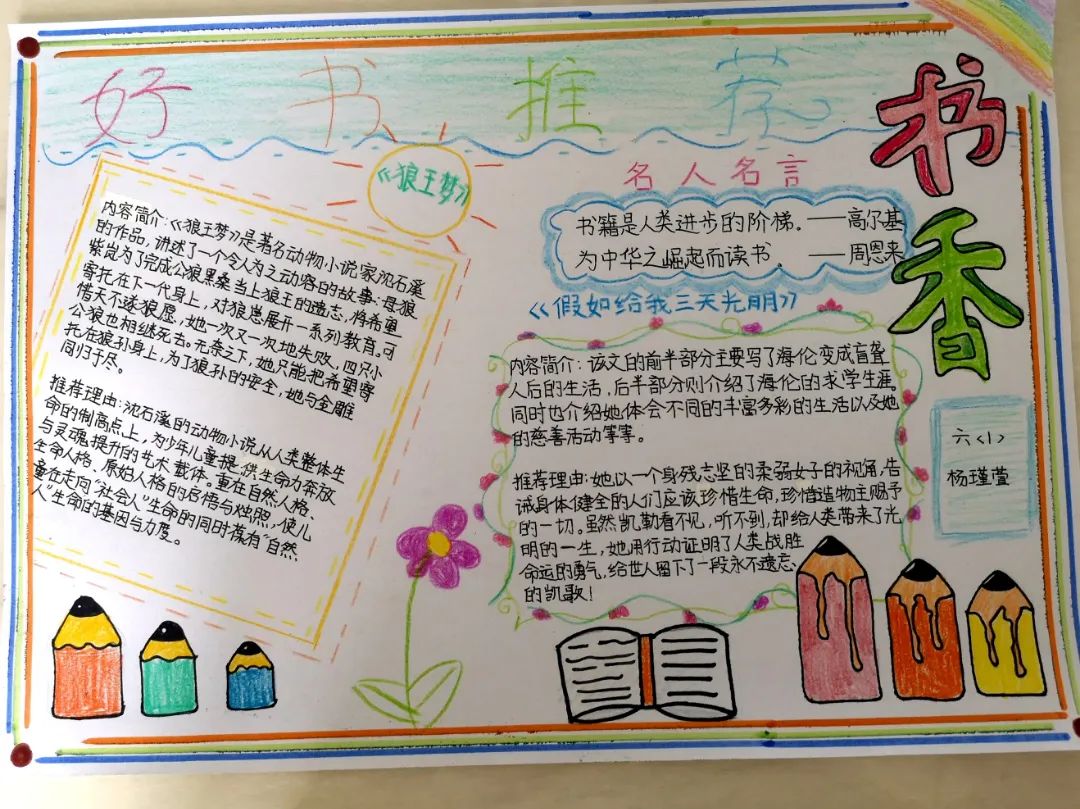 好书推荐
书香
《狼王梦》
内容简介:《狼王梦》是著名动物小说家沈石溪
的作品,讲述了一个令人为之动容的故事:母狼
紫岚为了完成公狼黑桑当上狼王的遗志,将希望
寄托在下一代身上,对狼崽展开一系列教育。可
惜天不遂狼愿,她一次又一次地失败,四只小
公狼也相继死去。无奈之下,她只能把希望寄
托在狼孙身上,为了狼孙的安全,她与金雕
同归于尽。
推荐理由:沈石溪的动物小说从人类整体生
命的制高点上,为少年儿童提供生命力奔放
与灵魂提升的艺术载体。重在自然人格、
生命人格、原始人格的启悟与烛照,使儿
童在走向“社会人”生命的同时葆有“自然
人”生命的基因与力度。
名人名言
书籍是人类进步的阶梯。——高尔基
为中华之崛起而读书。——周恩来
《假如给我三天光明》
内容简介:该文的前半部分主要写了海伦变成盲聋
人后的生活,后半部分则介绍了海伦的求学生涯。
同时也介绍她体会不同的丰富多彩的生活以及她
的慈善活动等等。
推荐理由:她以一个身残志坚的柔弱女子的视角,告
诫身体健全的人们应该珍惜生命,珍惜造物主赐予
的一切。虽然凯勒看不见,听不到,却给人类带来了光
明的一生,她用行动证明了人类战胜
命运的勇气,给世人留下了一段永不遗忘
的凯歌!
六<1>
杨瑾萱